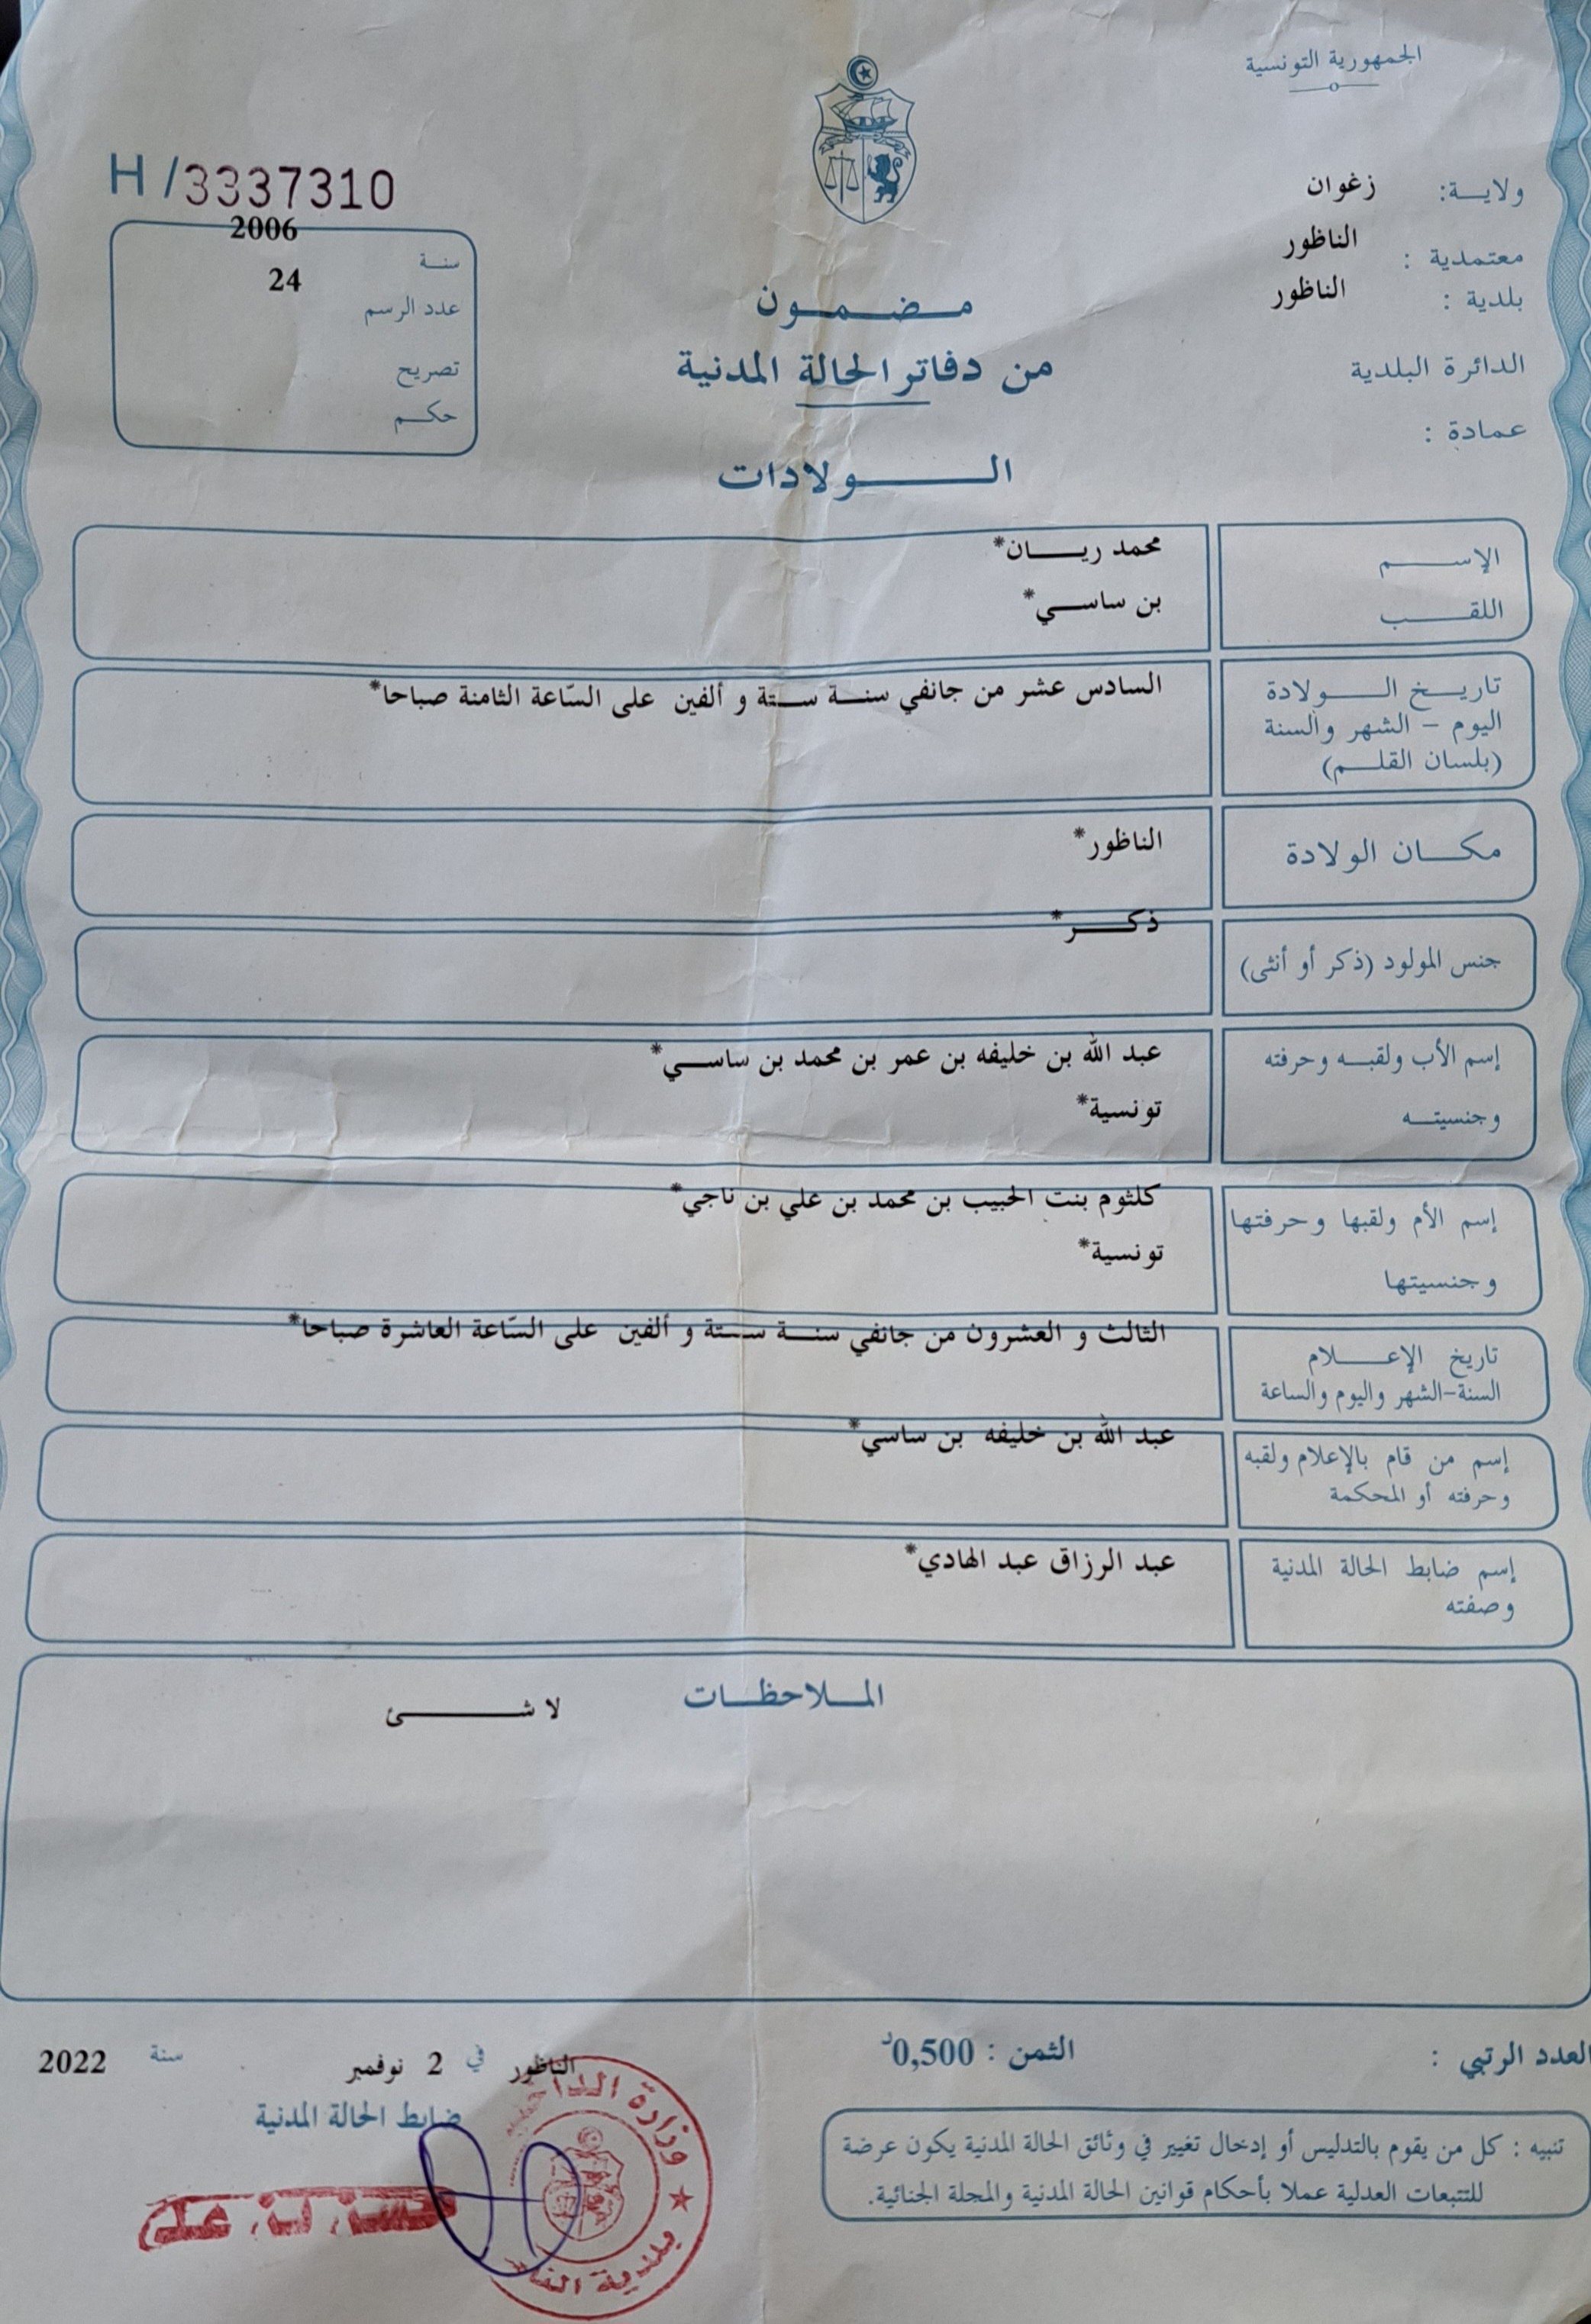 الجمهورية التونسية
H /3337310
ولايـــة: زغوان
معتمدية : الناظور
بلدية : الناظور
الدائرة البلدية
عمادة :
سنـة 2006
عدد الرسم 24
تصريح
حكــم
مـضـمـون
من دفاتر الحالة المدنية
الـــولادات
الإســـم محمد ريـــان*
اللقــب بن ساســي*
تاريــخ الـــولادة السادس عشر من جانفي سنــة ستــة و ألفين على السّاعة الثامنة صباحا*
اليوم – الشهر والسنة
(بلسان القلــم)
مكـــان الولادة الناظور*
جنس المولود (ذكر أو أنثى) ذكـــر*
إسم الأب ولقبــه وحرفته عبد الله بن خليفه بن عمر بن محمد بن ساســي*
وجنسيتــه تونسية*
إسم الأم ولقبها وحرفتها كلثوم بنت الحبيب بن محمد بن علي بن ناجي*
وجنسيتها تونسية*
تاريخ الإعـــلام الثالث و العشرون من جانفي سنــة ستــة و ألفين على السّاعة العاشرة صباحا*
السنة-الشهر واليوم والساعة
إسم من قام بالإعلام ولقبه عبد الله بن خليفه بن ساسي*
وحرفته أو المحكمة
إسم ضابط الحالة المدنية عبد الرزاق عبد الهادي*
وصفته
المــلاحظــات لا شـــئ
العدد الرتبي :
الثمن : 0,500د
الناظور في 2 نوفمبر سنة 2022
ضابط الحالة المدنية
تنبيه : كل من يقوم بالتدليس أو إدخال تغيير في وثائق الحالة المدنية يكون عرضة
للتتبعات العدلية عملا بأحكام قوانين الحالة المدنية والمجلة الجنائية.
وزارة
بلدية
بن علي